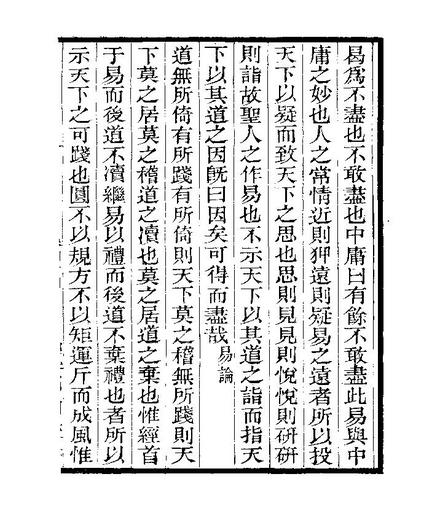 曷爲不盡也不敢盡也中庸曰有餘不敢盡此易與中
庸之妙也人之常情近則狎遠則疑易之遠者所以投
天下以疑而致天下之思也思則見見則悅悅則研研
則詣故聖人之作易也不示天下以其道之詣而指天
下以其道之因旣曰因矣可得而盡哉易論
道無所倚有所踐有所倚則天下莫之稽無所踐則天
下莫之居莫之稽道之瀆也莫之居道之棄也惟經首
于易而後道不瀆繼易以禮而後道不棄禮也者所以
示天下之可踐也圓不以規方不以矩運斤而成風惟